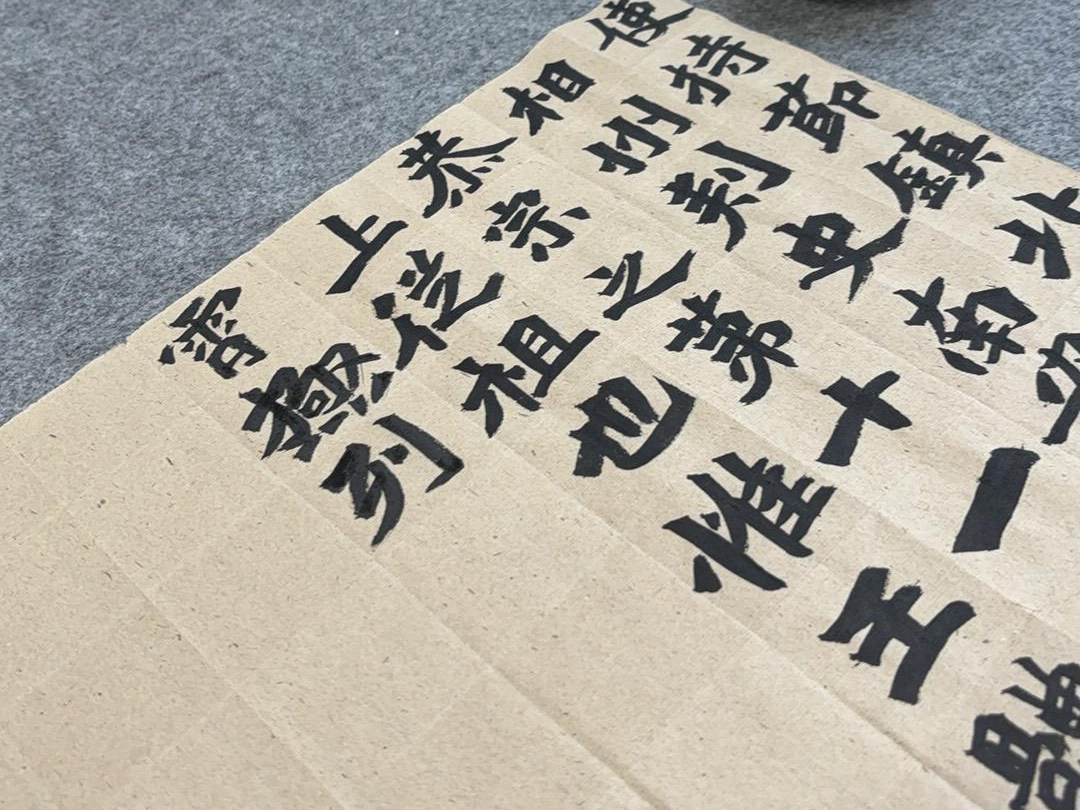 使持節鎮北
相州刺史南安
恭宗之第十一
上從祖也惟王體
霄極列